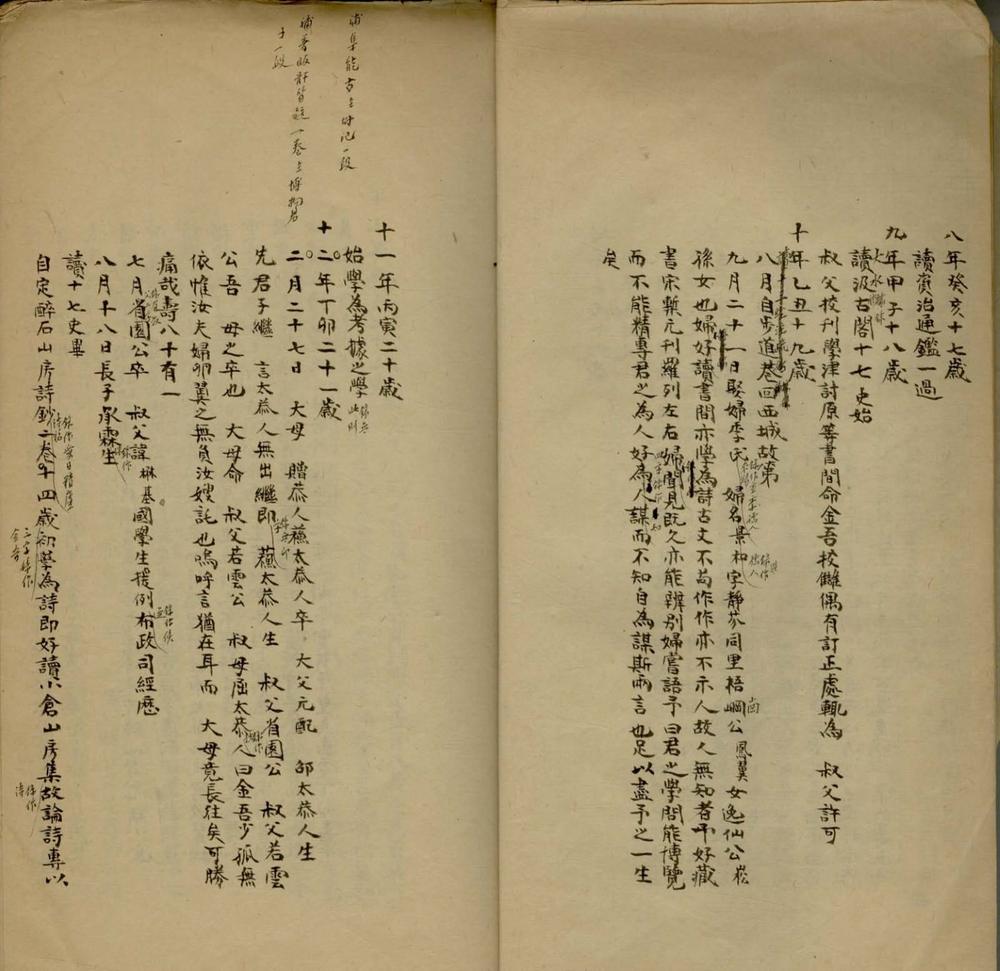 八年癸亥十七歲
讀資治通鑑一過
九年甲子十八歲
讀汲古閣十七史始
叔父校刊學津討原等書間命金吾校讎偶有訂正處輒為 叔父許可
十年乙丑十九歲
八月自步道巷回西城故第
九月二十一日娶婦季氏 婦名景和字靜芬同里梧崗公鳳翼女逸仙公崧
孫女也婦好讀書間亦學為詩古文不苟作作亦不示人故人無知者予好藏
書宋槧元刊羅列左右婦聞見既久亦能辨別婦嘗語予曰君之學問能博覽
而不能精專君之為人好為人謀而不知自為謀斯兩言也足以盡予之一生
矣
補集能古文母記一段
補著 一卷 博物君
子一段
十一年丙寅二十歲
始學為考據之學
十二年丁卯二十一歲
二月二十七日 大母 贈恭人蘓太恭人卒 大父元配 邵太恭人生
先君子繼 言太恭人無出繼即 蘓太恭人生 叔父省園公 叔父若雲
公吾 母之卒也 大母命 叔父若雲公 叔母屈太恭人曰金吾少孤無
依惟汝夫婦卵翼之無負汝嫂託也嗚呼言猶在耳而 大母竟長往矣可勝
痛哉壽八十有一
七月省園公卒 叔父諱楙基國學生援例布政司經歷
八月十八日長子承霖生
讀十七史畢
自定醉石山房詩鈔二卷 十四歲初學為詩即好讀小倉山房集故論詩專以